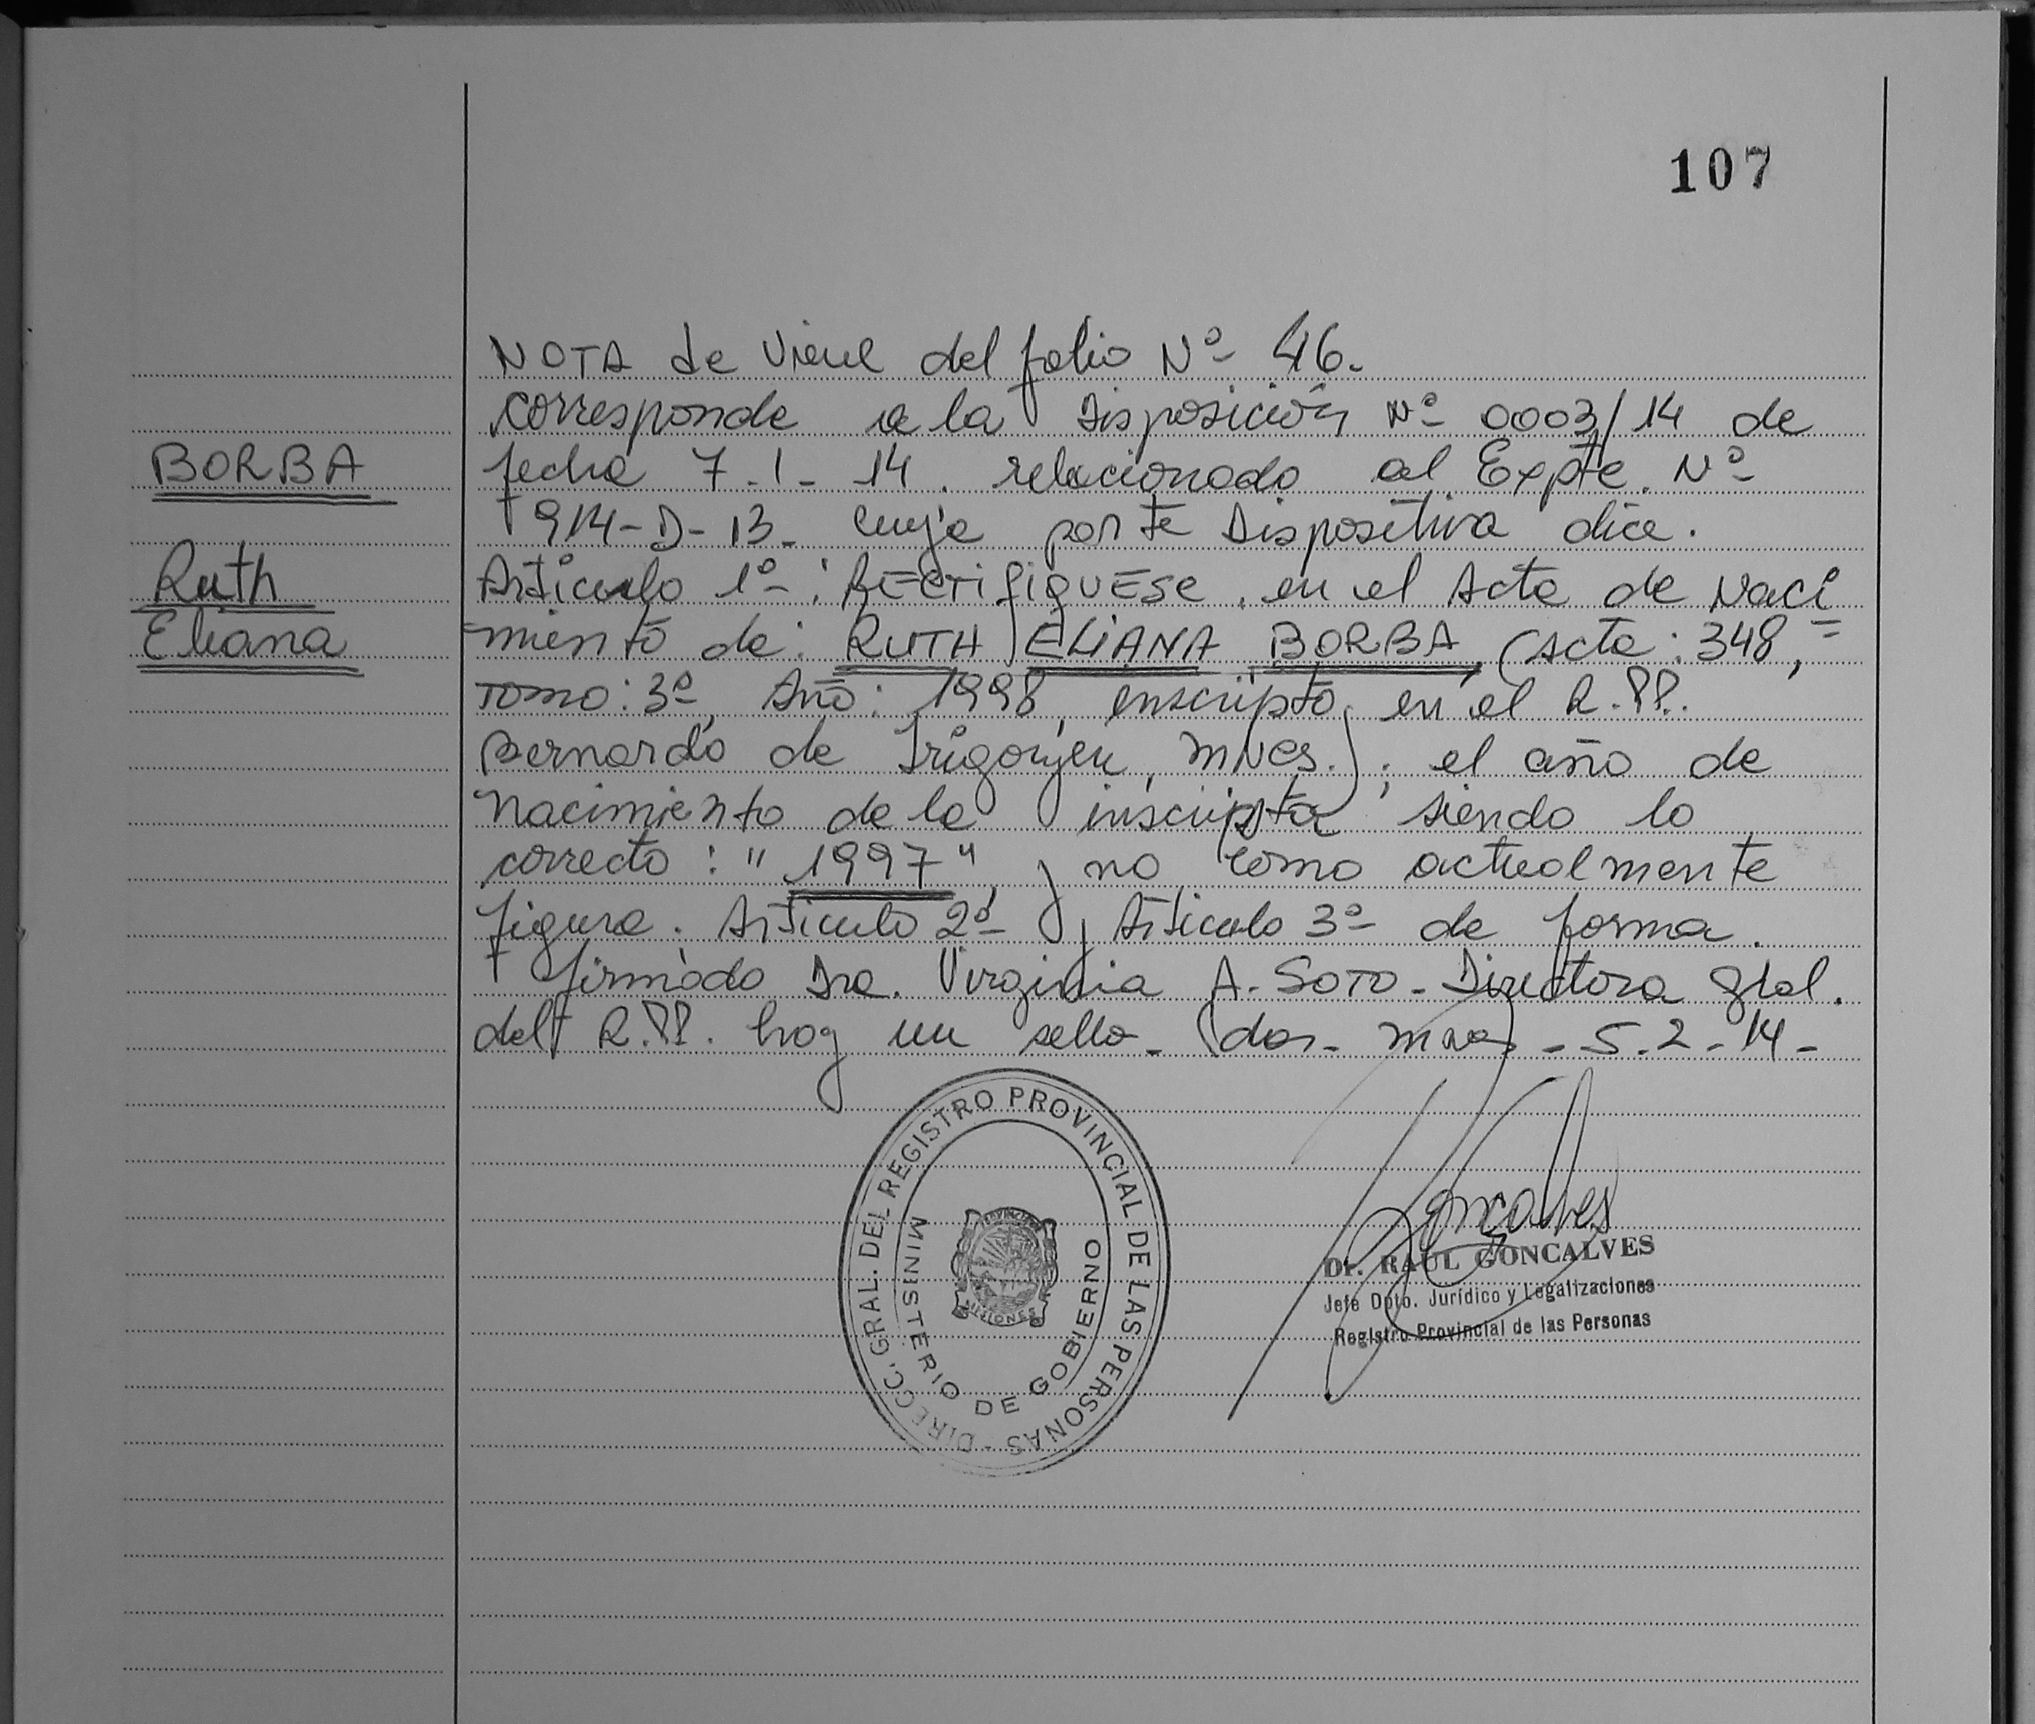 107
NOTA de viene del folio Nº 46.
Corresponde a la Disposición Nº 0003/14 de
BORBA
fecha 7-1-14. relacionado al Expte. Nº
914-D-13- cuya parte Dispositiva dice.
Ruth
Artículo 1º: RECTIFIQUESE, en el Acta de Naci
Eliana
miento de: RUTH ELIANA BORBA, (Acta: 348,
Tomo: 3º, Año: 1998, inscripta en el R.PP.
Bernardo de Irigoyen, Mnes.); el año de
Nacimiento de la inscripta siendo lo
correcto: "1997", y no como actualmente
figura. Artículo 2º y Artículo 3º de forma.
firmado Dra. Virginia A. SOTO - Directora Gral.
del R.PP. hay un sello - Pdas. Mnes - 5-2-14-
DIRECC. GRAL. DEL REGISTRO PROVINCIAL DE LAS PERSONAS
MINISTERIO DE GOBIERNO
MISIONES
Goncalves
Dr. RAUL GONCALVES
Jefe Dpto. Jurídico y Legalizaciones
Registro Provincial de las Personas